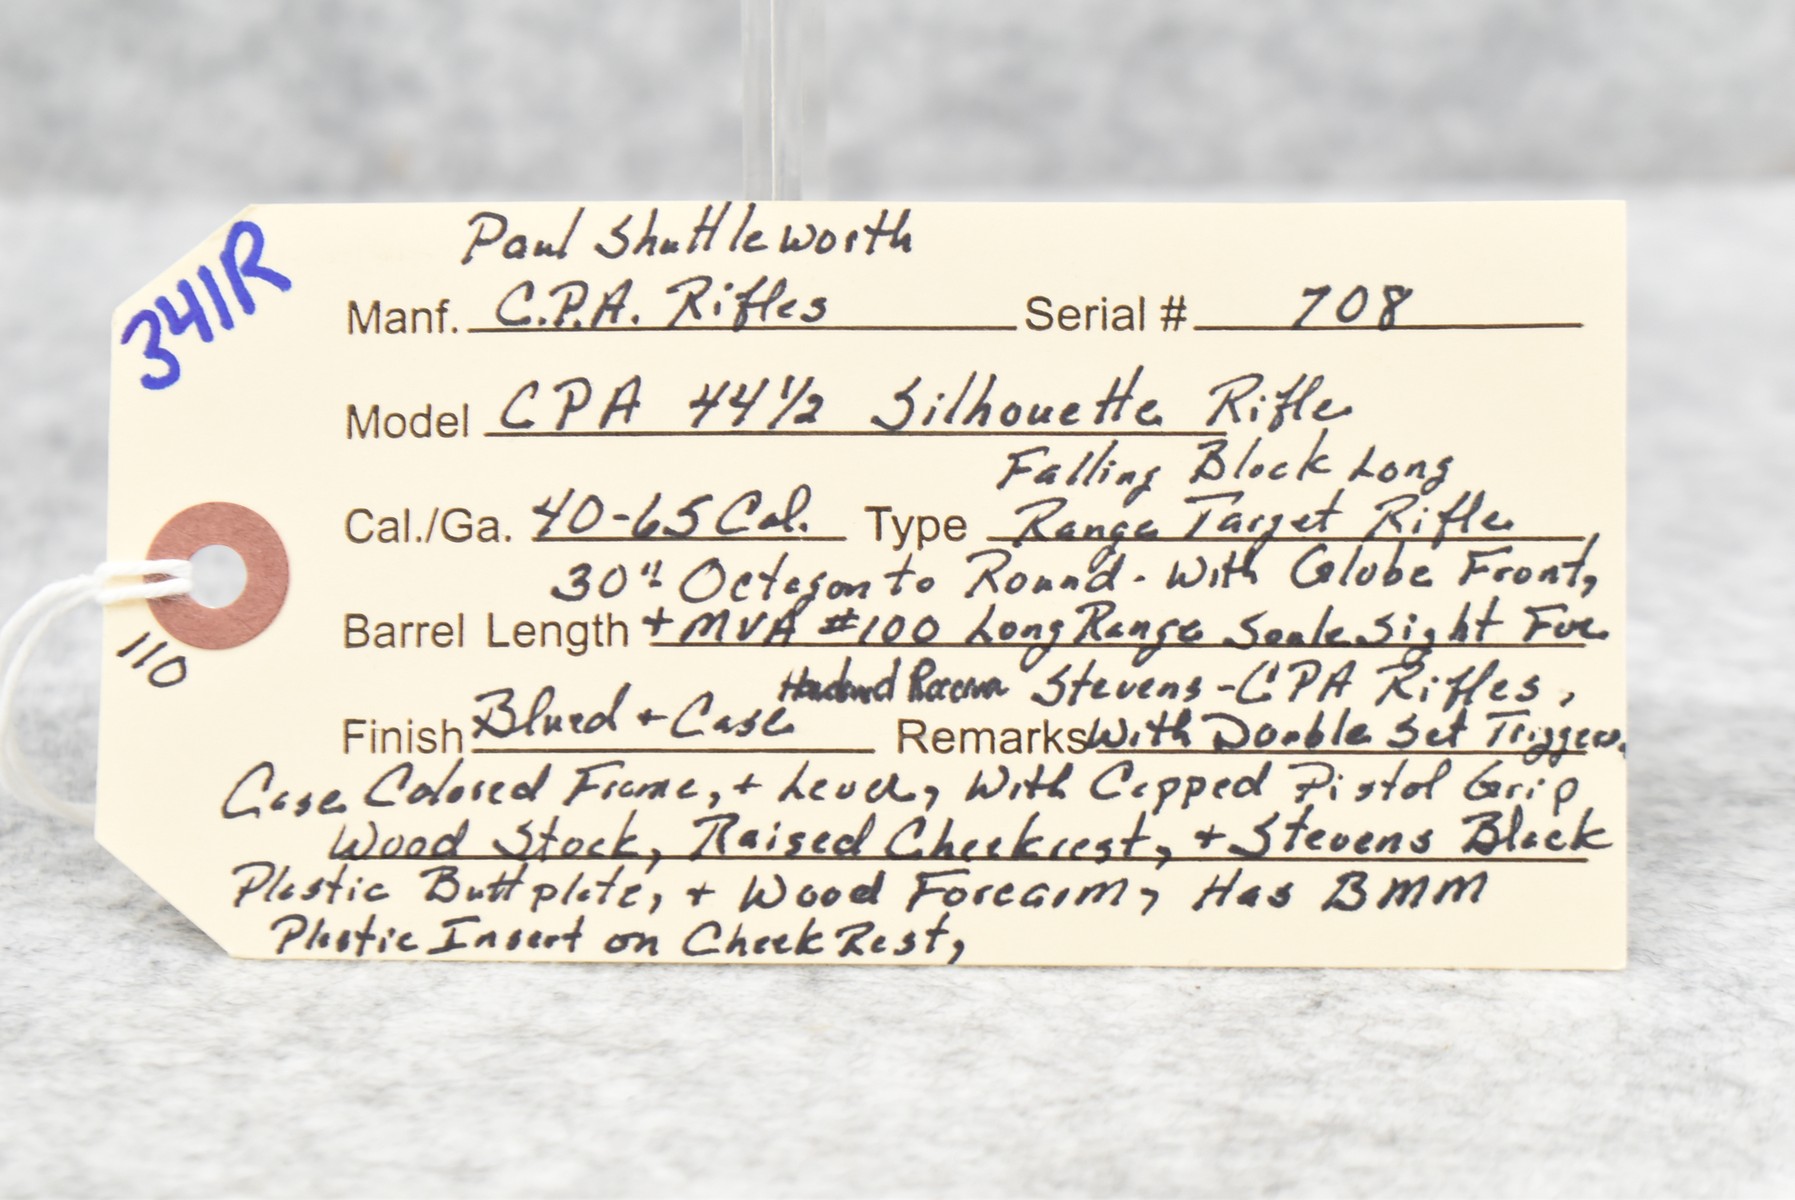 341R
110
Paul Shuttleworth
Manf. C.P.A. Rifles Serial # 708
Model CPA 44½ Silhouette Rifle
Falling Block Long
Cal./Ga. 40-65 Cal. Type Range Target Rifle
30" Octagon to Round - With Globe Front,
Barrel Length + MVA #100 Long Range Soule Sight For
Stevens-CPA Rifles,
Finish Blued + Case Remarks With Double Set Triggers,
Case Colored Frame, + Lever, With Capped Pistol Grip
Wood Stock, Raised Cheekrest, + Stevens Black
Plastic Buttplate, + Wood Forearm, Has BMM
Plastic Insert on Cheek Rest,